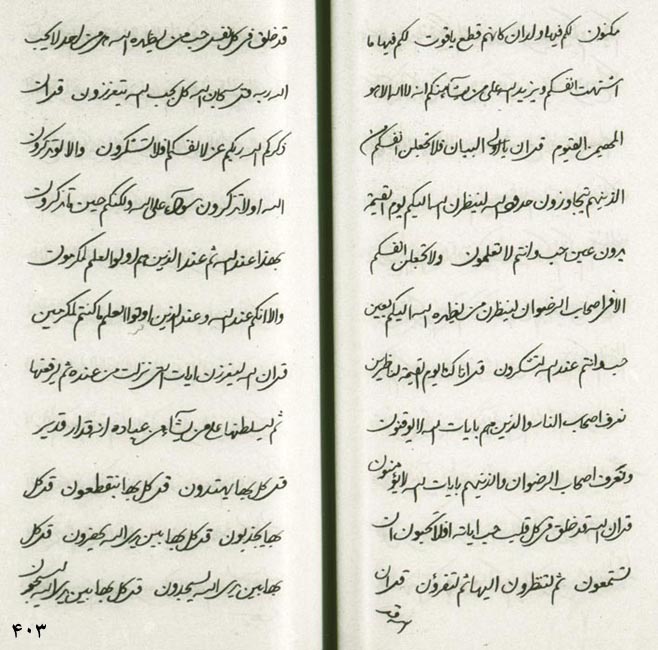 مكنون لكم فيها ولدان كانهم قطع ياقوت لكم فيها ما
اشتهت انفسكم ويزيد الله على من يشاء منكم انه لا اله الا هو
المهيمن القيوم قل ان يا اولي البيان فلا تجعلن انفسكم من
الذينهم يتجاوزون حدود الله لينظرن الله اليكم يوم القيمة
عين حب وانتم لا تعلمون ولا تجعلن انفسكم
الا في اصحاب الرضوان لينظرن من يظهره الله اليكم بعين
حب وانتم عند الله لتشكرون قل انا كنا يوم القيمة لناظرين
نعرف اصحاب النار والذين هم بايات الله لا يوقنون
ونعرف اصحاب الرضوان والذينهم بايات الله ليؤمنون
قل ان الله قد خلق في كل قلب حب اياته افلا تحبون ان
تستمعون ثم لتنظرون اليها ثم لتقرؤن قل ان
الله قد
قد خلق في كل نفس حب من يظهره الله هل من احد لا يحب
الله ربه قل سبحان الله كل بحب الله يتعززون قل ان
ذكركم الله ربكم عز لانفسكم افلا تشكرون والا لو تذكرون
الله او لا تذكرون سواء على الله ولكنكم حين ما تذكرون
بهذا عند الله ثم عند الذين هم اولوا العلم لتكرمون
والا انكم عند الله وعند الذين اوتوا العلم ما كنتم لمكرمين
قل ان الله ليعززن بايات التي نزلت من عنده ثم يرفعنها
ثم ليسلطنها على من يشاء من عباده انه قدار قدير
قل كل بها يهتدون قل كل بها ينقطعون قل كل
بها يجذبون قل كل بها بين يدي الله يحضرون قل كل
بها بين يدي الله ليسجدون قل كل بها بين يدي الله
۴۰۳